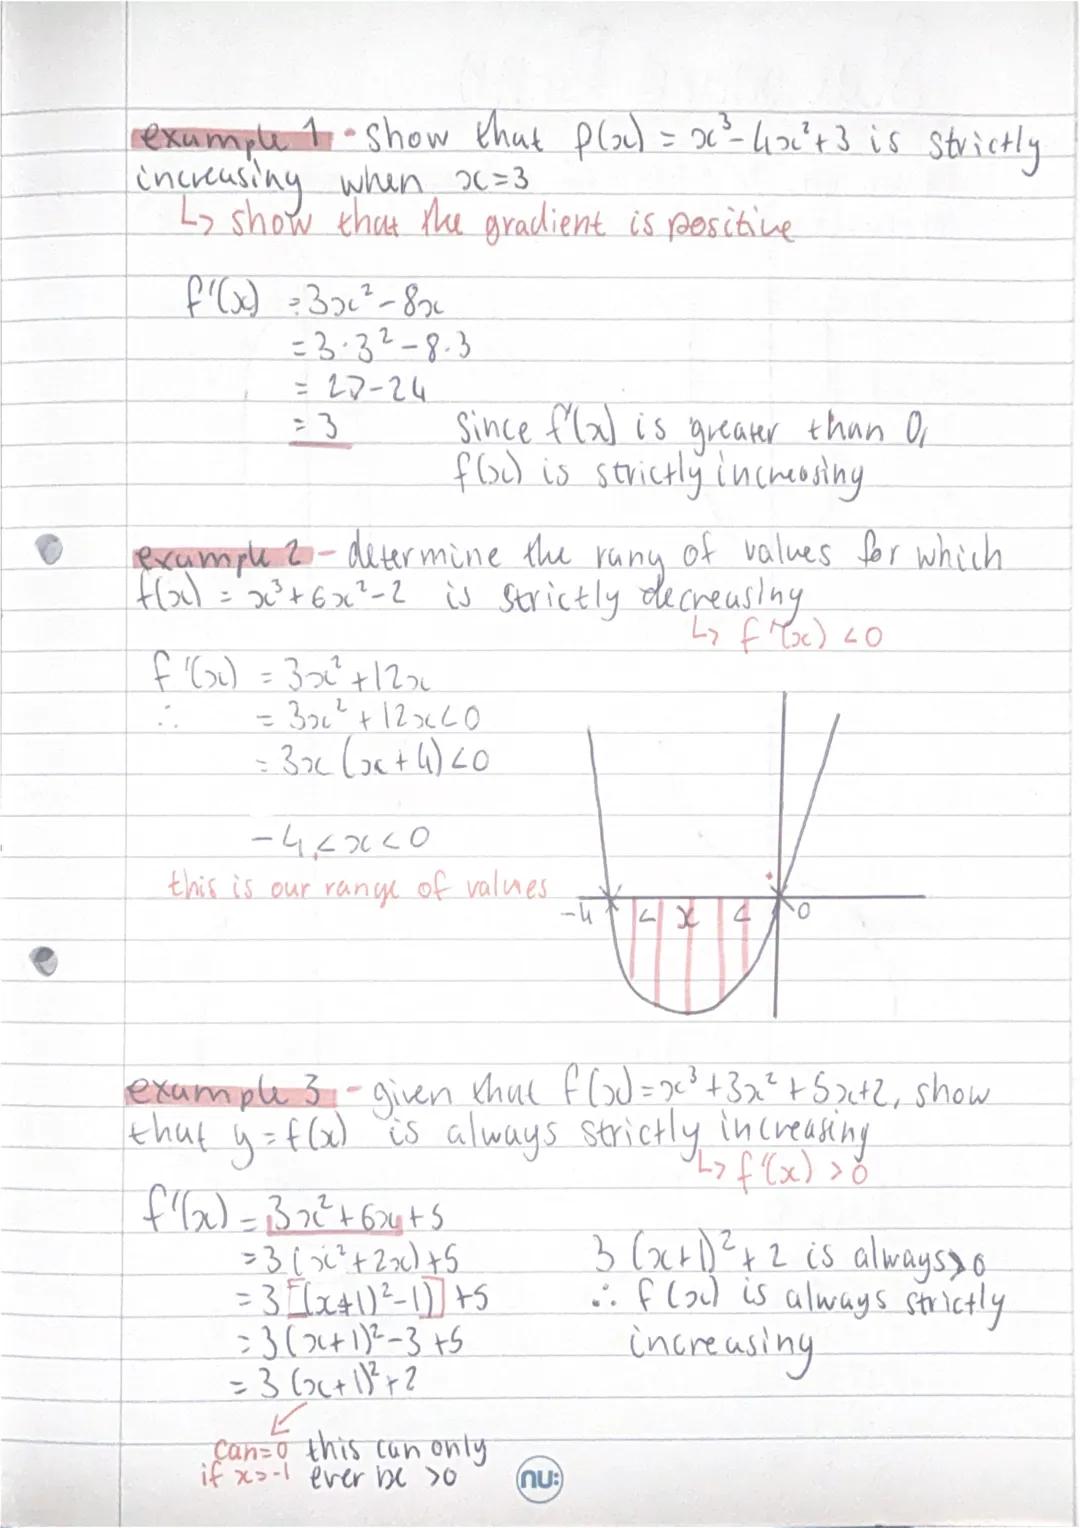 example 1 - show that f(x) = x³ - 4x² + 3 is strictly
increasing when x=3
↳ show that the gradient is positive
f'(x) = 3x² - 8x
= 3·3² - 8·3
= 27-24
= 3
Since f'(x) is greater than 0,
f(x) is strictly increasing
example 2 - determine the rang of values for which
f(x) = x³ + 6x² - 2 is strictly decreasing
↳ f'(x) < 0
f'(x) = 3x² + 12x
∴ = 3x² + 12x < 0
= 3x (x + 4) < 0
-4 < x < 0
this is our range of values
-4 < x < 0
example 3 - given that f(x) = x³ + 3x² + 5x + 2, show
that y = f(x) is always strictly increasing
↳ f'(x) > 0
f'(x) = 3x² + 6x + 5
= 3 (x² + 2x) + 5
= 3 [(x+1)² - 1)] + 5
= 3 (x+1)² - 3 + 5
= 3 (x+1)² + 2
3 (x+1)² + 2 is always > 0
∴ f(x) is always strictly
increasing
can=0 this can only
if x=-1 ever be >0
nu: